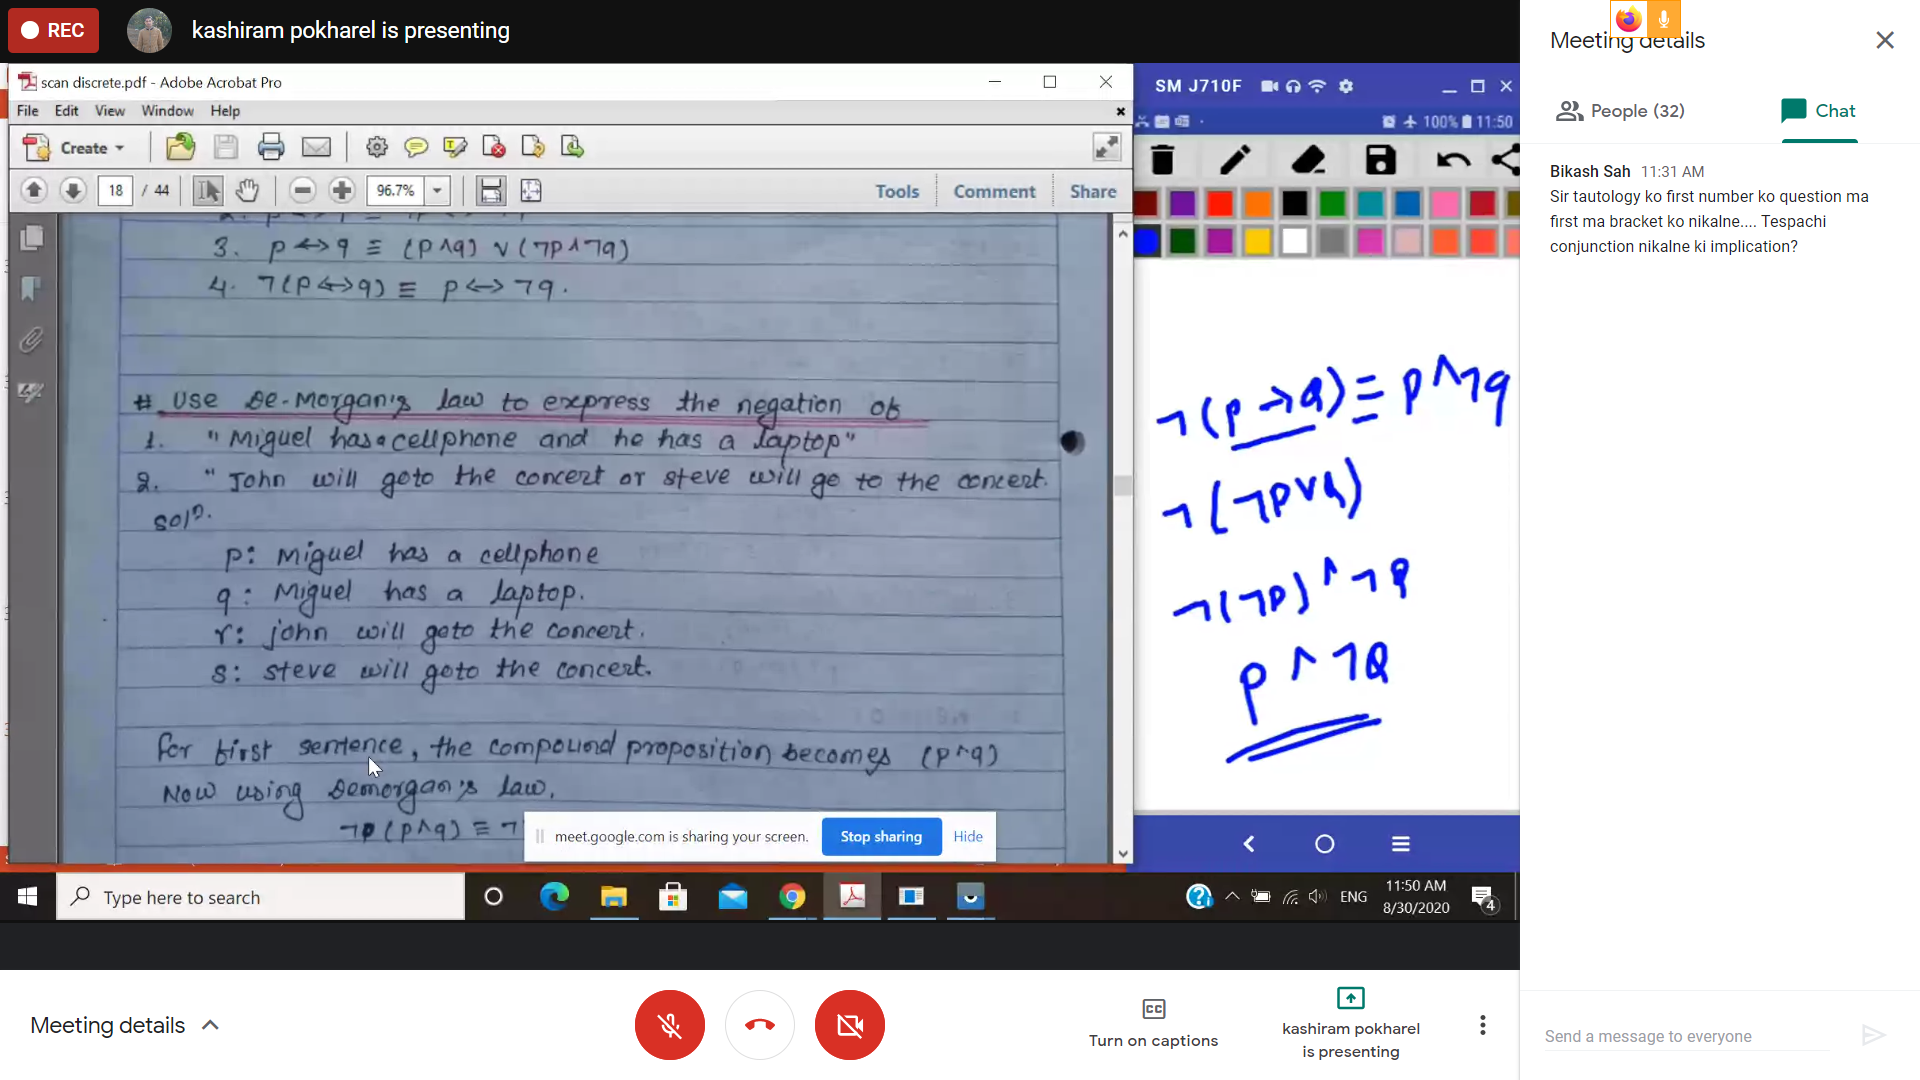 REC
kashiram pokharel is presenting
scan discrete.pdf - Adobe Acrobat Pro
File Edit View Window Help
Create
18 / 44
96.7%
Tools Comment Share
3. p ↔ q ≡ (p ∧ q) ∨ (¬p ∧ ¬q)
4. ¬(p ↔ q) ≡ p ↔ ¬q.
# Use De-Morgan's law to express the negation of
1. "Miguel has a cellphone and he has a laptop"
2. "John will goto the concert or steve will go to the concert.
soln.
p: Miguel has a cellphone
q: Miguel has a laptop.
r: john will goto the concert.
s: steve will goto the concert.
For first sentence, the compound proposition becomes (p ∧ q)
Now using Demorgan's law,
(p ∧ q) ≡ ¬
meet.google.com is sharing your screen.
Stop sharing
Hide
SM J710F
100% 11:50
¬(p → Q) ≡ p ∧ ¬q
¬(¬p ∨ Q)
¬(¬p) ∧ ¬Q
p ∧ ¬Q
Type here to search
ENG
11:50 AM
8/30/2020
4
Meeting details
People (32)
Chat
Bikash Sah 11:31 AM
Sir tautology ko first number ko question ma
first ma bracket ko nikalne.... Tespachi
conjunction nikalne ki implication?
Meeting details
Turn on captions
kashiram pokharel
is presenting
Send a message to everyone